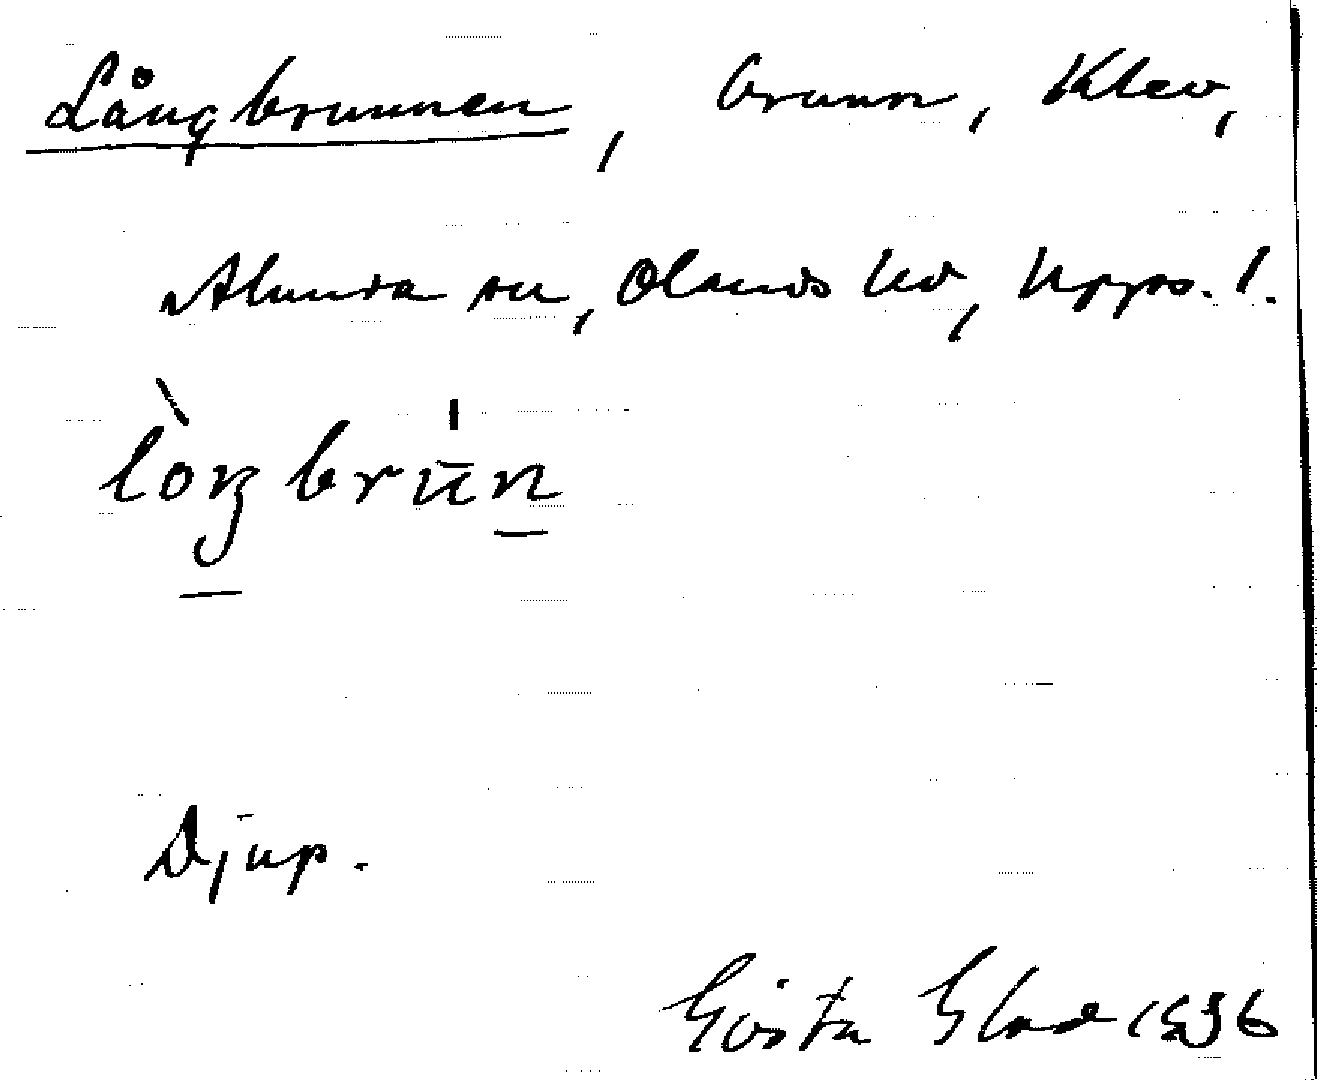 Långbrunnen, brunn, Klev,
Alunda sn, Olands hd, Upps. l.
lòŋbrün
Djup.
Gösta 1936